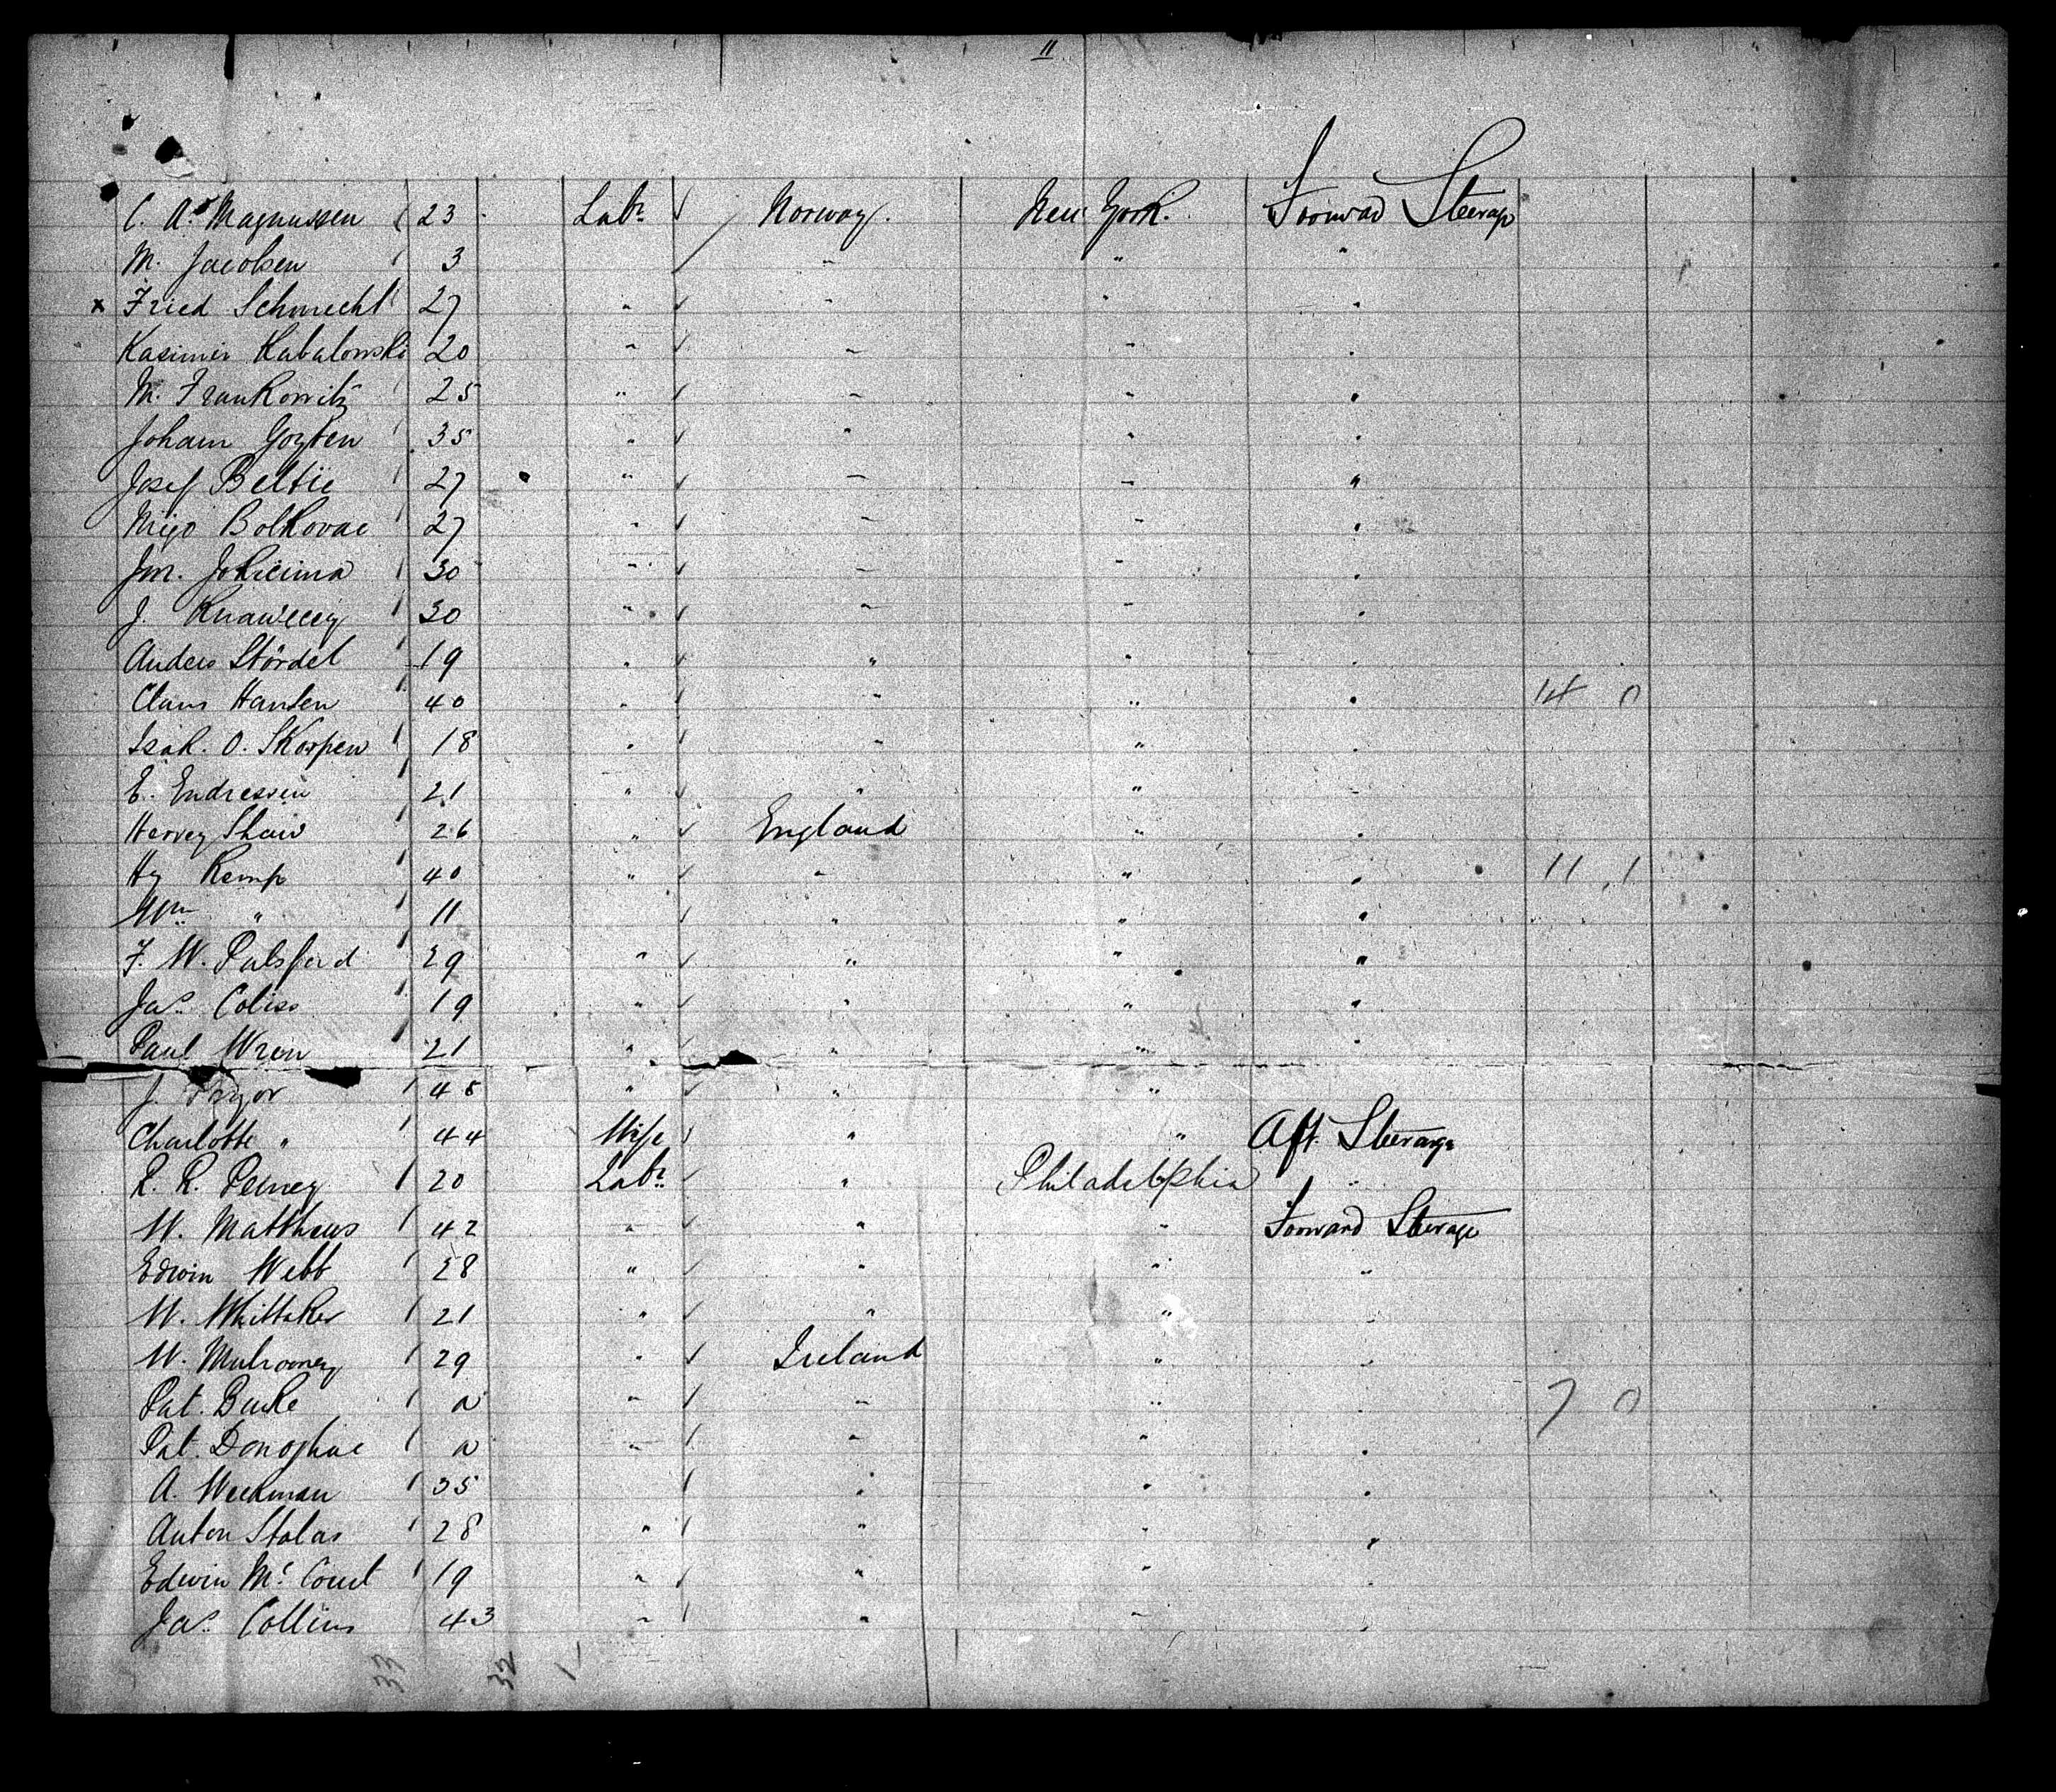 11
C. A. Magnussen 23 Labr. Norway. New York. Forward Steerage
M. Jacobsen 3 " " "
x Fried Schmecht 27 " " " "
Kasimir Kabalowski 20 " " " "
M. Frankowitz 25 " " " "
Johann Gozten 35 " " " "
Josef Beltie 27 " " " "
Migo Bolkovac 27 " " " "
30 " " " "
J. 30 " " " "
Anders Stördel 19 " " " "
Claus Hansen 40 " " " " 14 0
Isak. O. Skorpen 18 " " " "
E. Endressen 21 " " " "
Harvey Shaw 26 " England " "
Hy Kemp 40 " " " " 11 1
Wm " 11 " " "
F. W. Pulsford 29 " " " "
Jas. Coliss 19 " " " "
Paul Wren 21 " " " "
J. Pryor 48 " " "
Charlotte " 44 Wife " " Aft. Steerage
R. R. 20 Labr. " Philadelphia "
W. Matthews 42 " " " Forward Steerage
Edwin Webb 28 " " " "
W. Whittaker 21 " " " "
W. Mulrooney 29 " Ireland " "
Pat. Burke a " " " " 7 0
Pat. Donoghue a " " " "
A. Weekman 35 " " "
Anton Stolas 28 " " " "
Edwin Mc Court 19 " " " "
Jas. Collins 43 " " " "
33 32 1